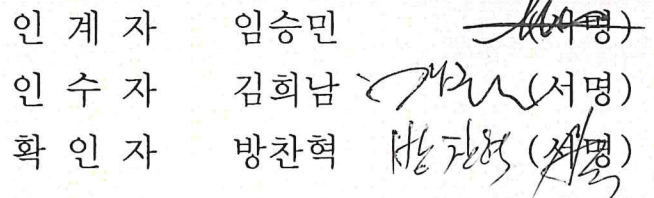 인 계 자 임승민 (서명)
인 수 자 김희남 (서명)
확 인 자 방찬혁 방찬혁 (서명)